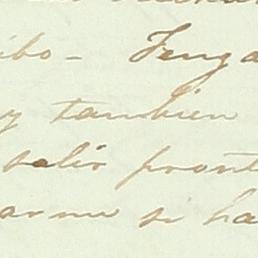 ibo - Tenga
y tambien
salir pront
arme si ha